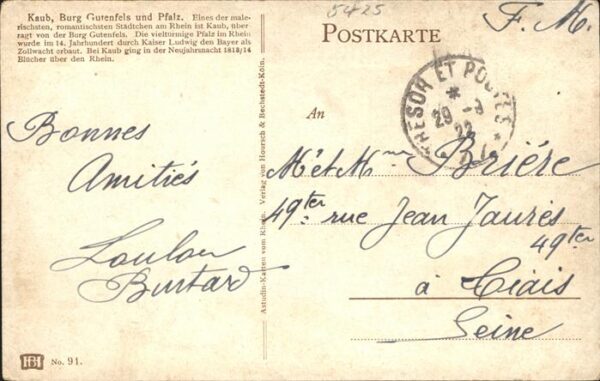 Kaub, Burg Gutenfels und Pfalz. Eines der male-
rischsten, romantischsten Städtchen am Rhein ist Kaub, über-
ragt von der Burg Gutenfels. Die vieltürmige Pfalz im Rhein
wurde im 14. Jahrhundert durch Kaiser Ludwig den Bayer als
Zollwacht erbaut. Bei Kaub ging in der Neujahrsnacht 1813/14
Blücher über den Rhein.
Bonnes
Amitiés
Loulou
No. 91.
Astudin-Karten vom Rhein. Verlag von Hoursch & Bechstedt-Köln.
5425
F. M.
POSTKARTE
TRESOR ET POSTES
29
22
An
M et Mme Brière
49ter rue Jean Jaurès
49ter
à
Seine